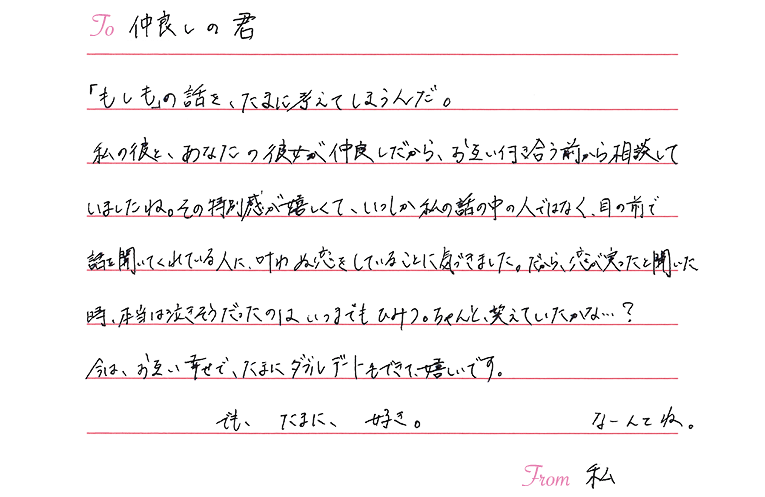 To 仲良しの君
「もしも」の話を、たまに考えてしまうんだ。
私の彼と、あなたの彼女が仲良しだから、お互い付き合う前から相談して
いましたね。その特別感が嬉しくて、いつしか私の話の中の人ではなく、目の前で
話を聞いてくれている人に、叶わぬ恋をしていることに気づきました。だから、恋が実ったと聞いた
時、本当は泣きそうだったのはいつまでもひみつ。ちゃんと、笑えていたかな…?
今は、お互い幸せで、たまにダブルデートもできて、嬉しいです。
でも、 たまに、 好き。 なーんてね。
From 私